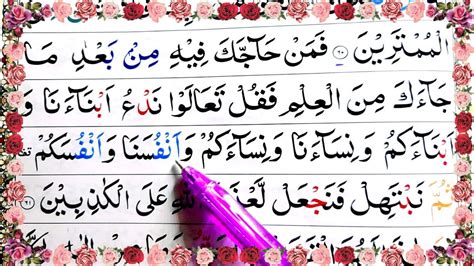 الْمُمْتَرِيْنَ ۝٦٠ فَمَنْ حَآجَّكَ فِيْهِ مِنْۢ بَعْدِ مَا
جَآءَكَ مِنَ الْعِلْمِ فَقُلْ تَعَالَوْا نَدْعُ اَبْنَآءَنَا وَ
اَبْنَآءَكُمْ وَنِسَآءَنَا وَنِسَآءَكُمْ وَاَنْفُسَنَا وَاَنْفُسَكُمْ
ثُمَّ نَبْتَهِلْ فَنَجْعَلْ اللّٰهِ عَلَى الْكٰذِبِيْنَ ۝٦١